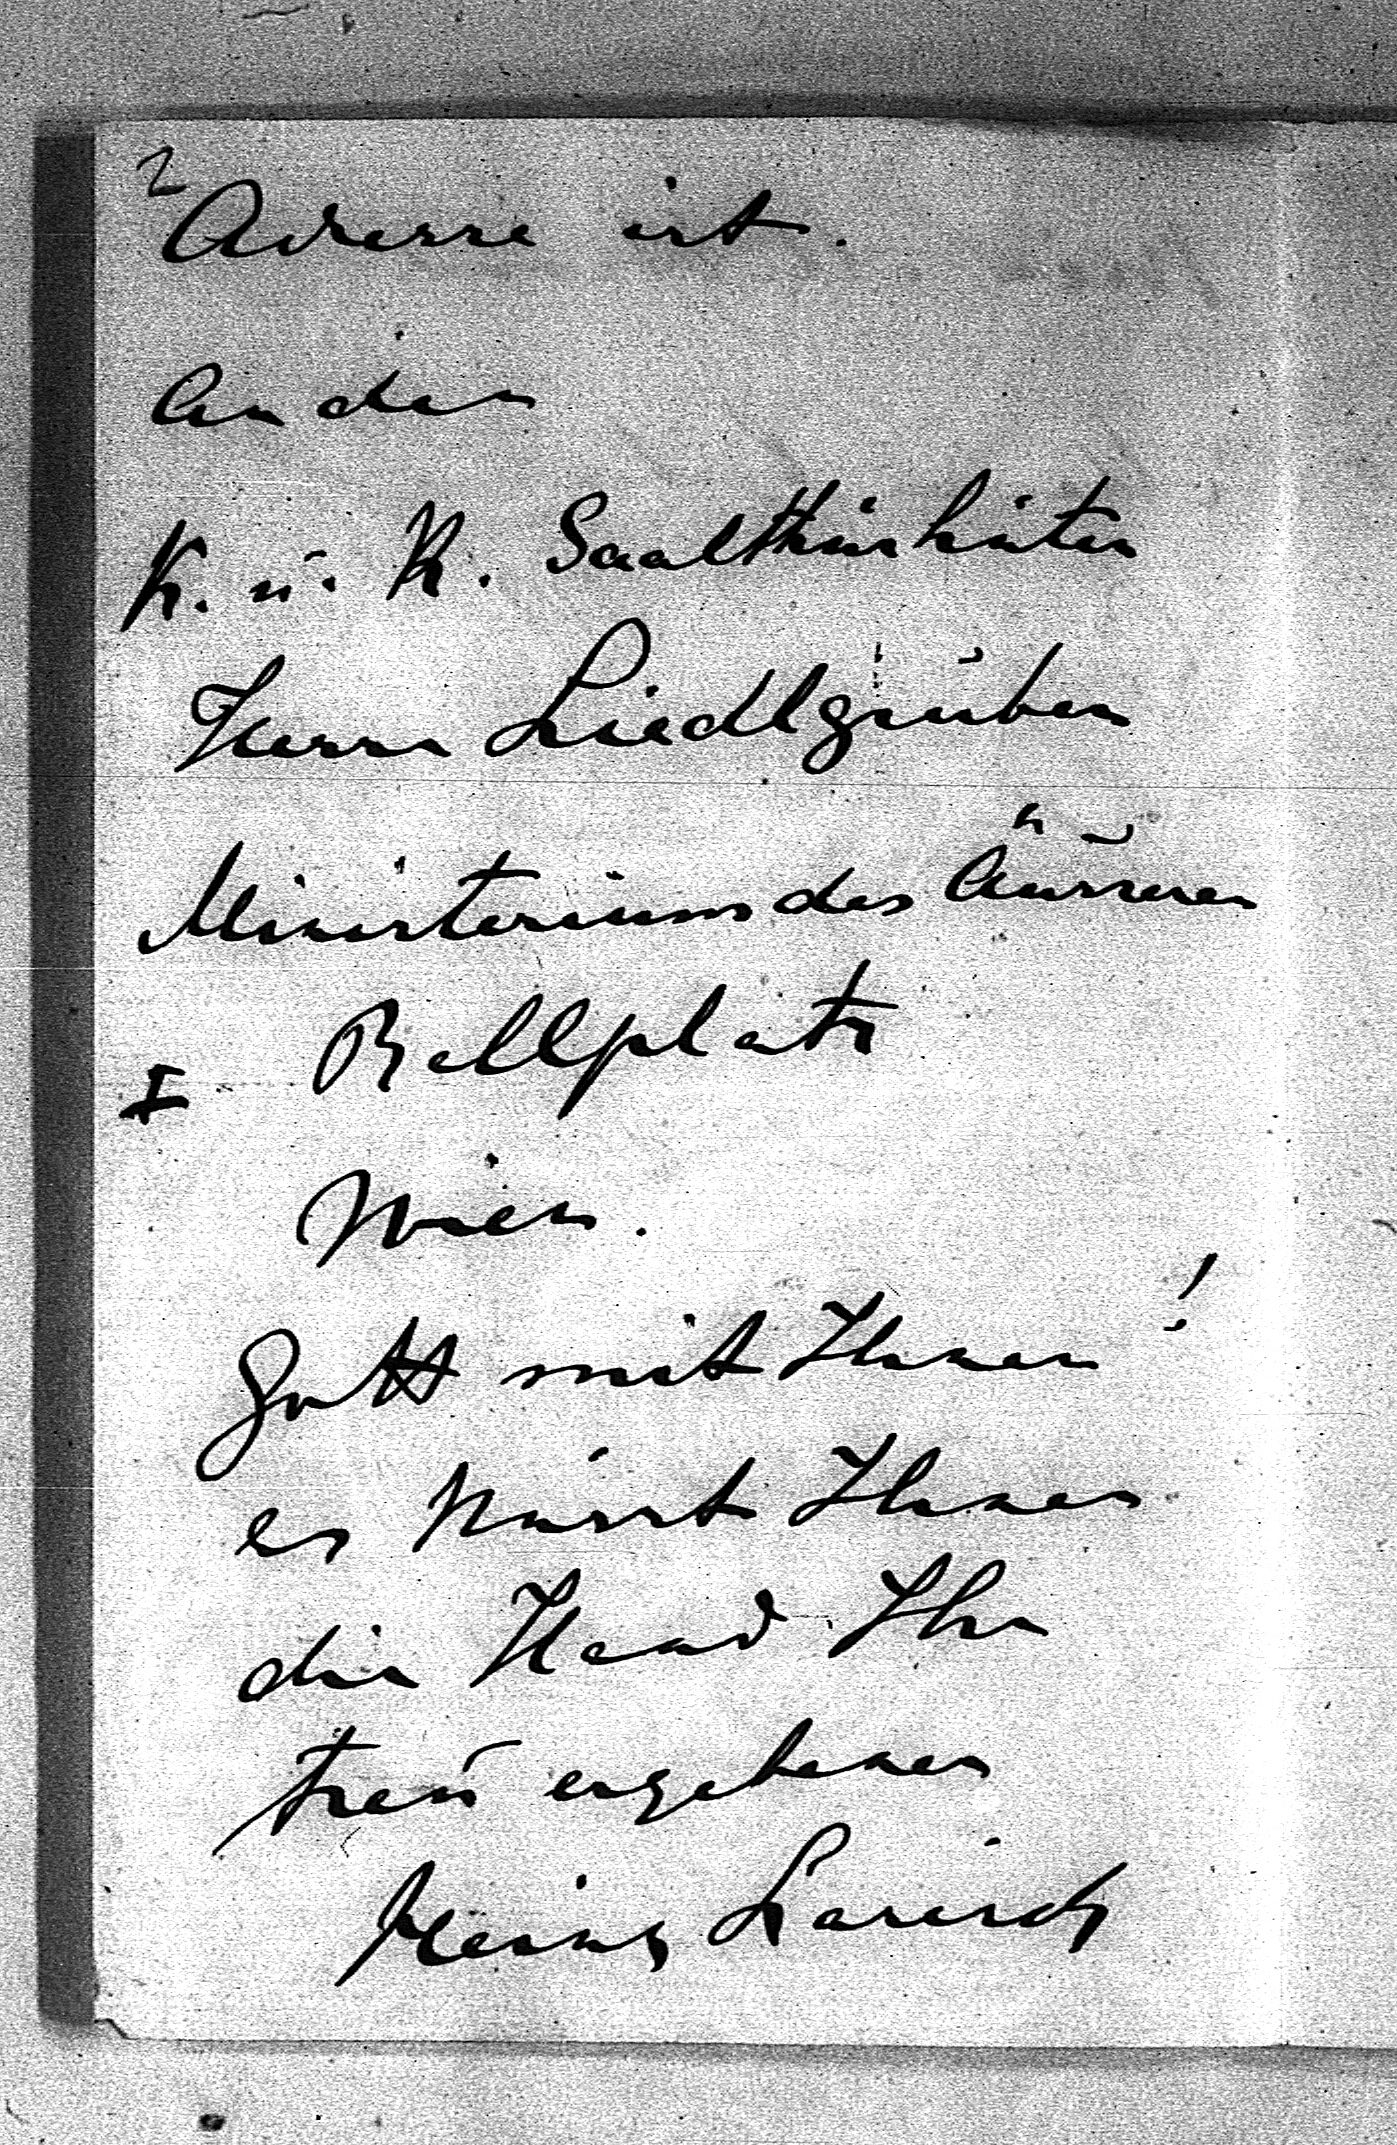 2
Adresse ist.
An den
K. u. K. Saalthürhüter
Herrn Liedlgruber
Ministerium des Äusseren
I Ballplatz
Wien.
Gott mit Ihnen!
es küsst Ihnen
die Hand Ihr
treu ergebener
Larisch